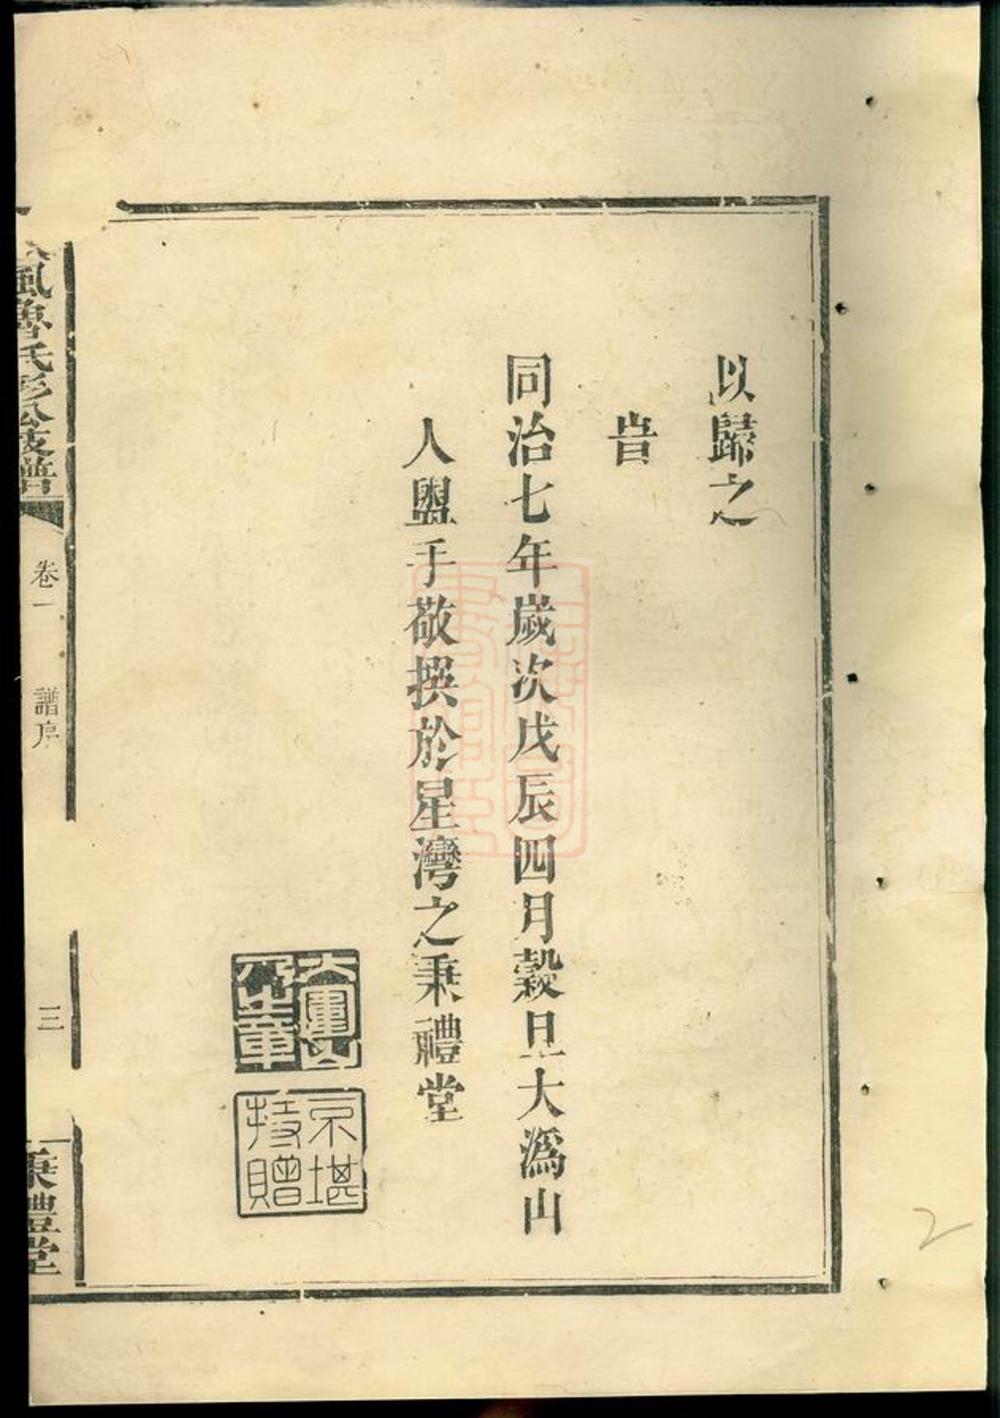 以歸之
旹
同治七年歲次戊辰四月穀旦大溈山
人盥手敬撰於星灣之秉禮堂
大溈山人之章
不堪持贈
風魯氏彭公支譜
卷一
譜序
三
秉禮堂
2